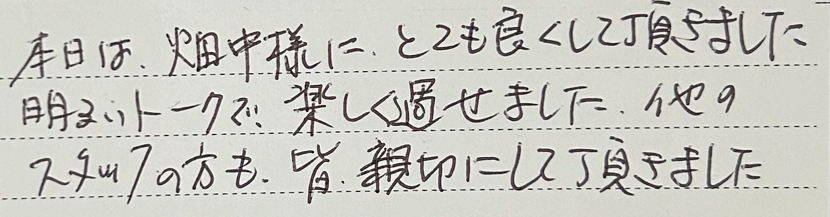 本日は、畑中様に、とても良くして頂きました
明るいトークで、楽しく過せました、他の
スタッフの方も、皆、親切にして頂きました